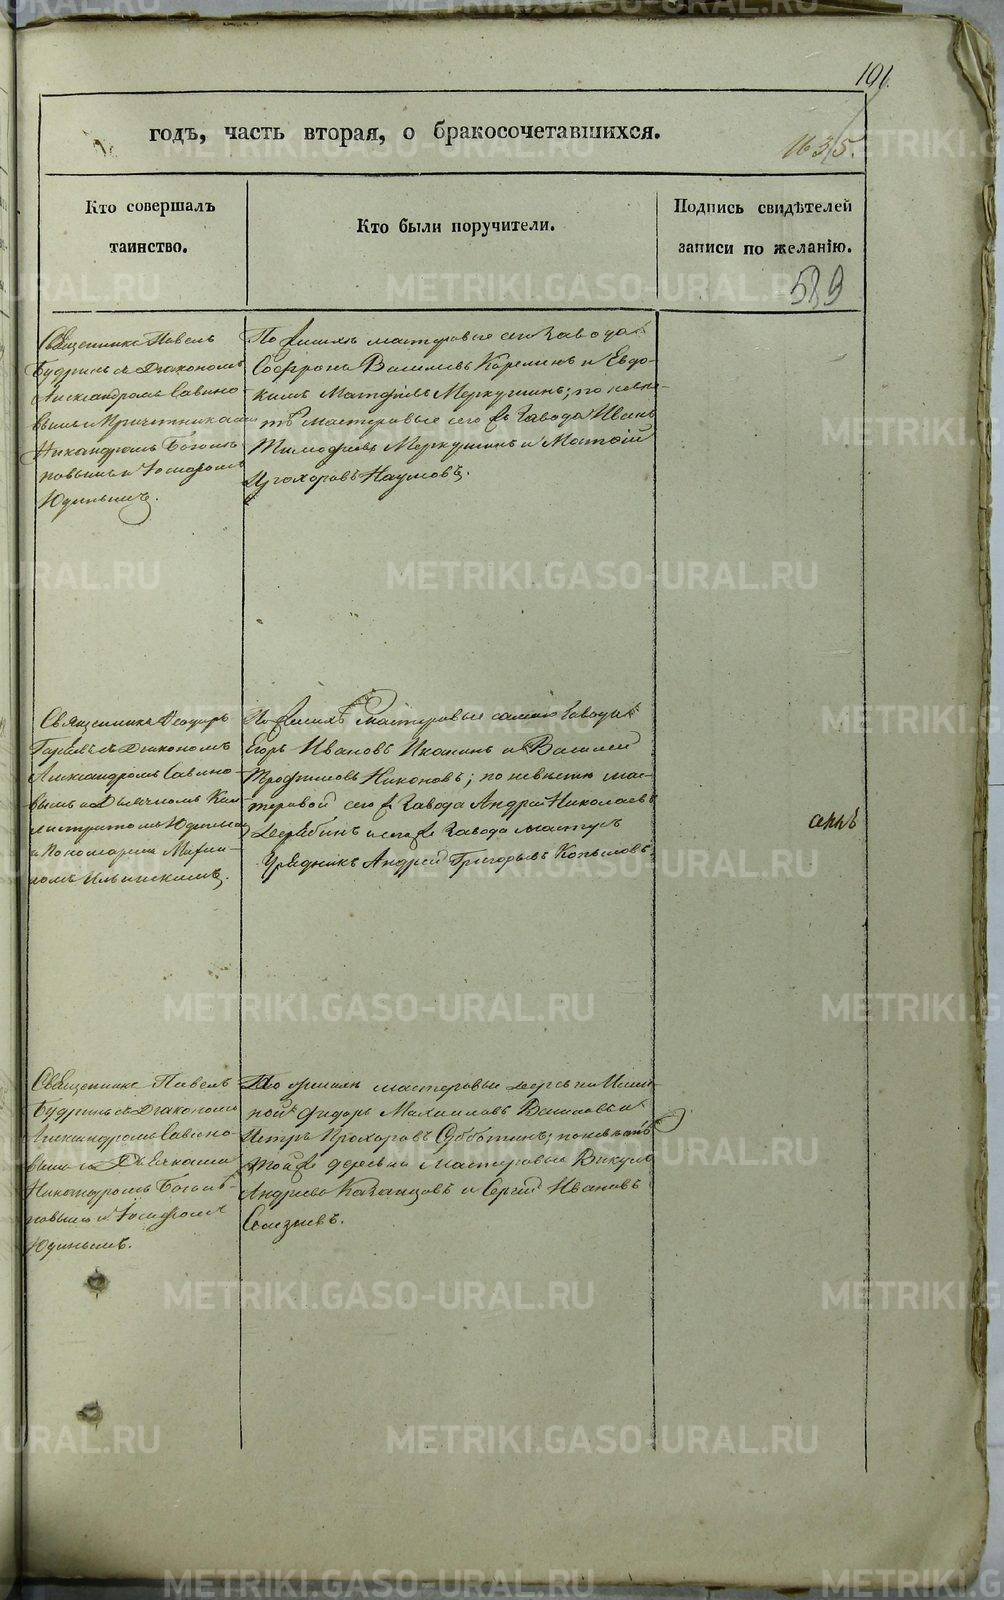 191.
годъ, часть вторая, о бракосочетавшихся.
1635.
Кто совершалъ
таинство.
Кто были поручители.
Подпись свидѣтелей
записи по желанію.
589
Священникъ Павелъ
Будринъ съ Діакономъ
Александромъ Савино-
вымъ и Причетниками
Никандромъ Боголе-
повымъ и Іосифомъ
Юдинымъ.
По женихѣ мастеровые сего Завода
Софронъ Васильевъ Карелинъ и Евдо-
кимъ Матфѣевъ Меркушинъ; по невѣ-
стѣ мастеровые сего же Завода Иванъ
Тимофеевъ Меркушинъ и Матфій
Прохоровъ Наумовъ.
Священникъ Ѳеодоръ
съ Діакономъ
Александромъ Савино-
вымъ и Дьячкомъ Кал-
листратомъ Юдинымъ
и Пономаремъ
Ильинскимъ.
По женихѣ мастеровые сего Завода
Егоръ Ивановъ и Василей
Трофимовъ Никоновъ; по невѣстѣ мас-
теровой сего же Завода Андрей Николаевъ
Дерябинъ и сего же Завода
Урядникъ Андрей Григорьевъ Копыловъ.
аннъ
Священникъ Павелъ
Будринъ съ Діакономъ
Александромъ Савино-
вымъ и Дьячками
Никандромъ Боголе-
повымъ и Іосифомъ
Юдинымъ.
По женихѣ мастеровые деревни
Федоръ Михайловъ и
Петръ Прохоровъ Субботинъ; по невѣстѣ
той же деревни мастеровые Викулъ
Андреевъ Казанцовъ и Сергій Ивановъ
METRIKI.GASO-URAL.RU